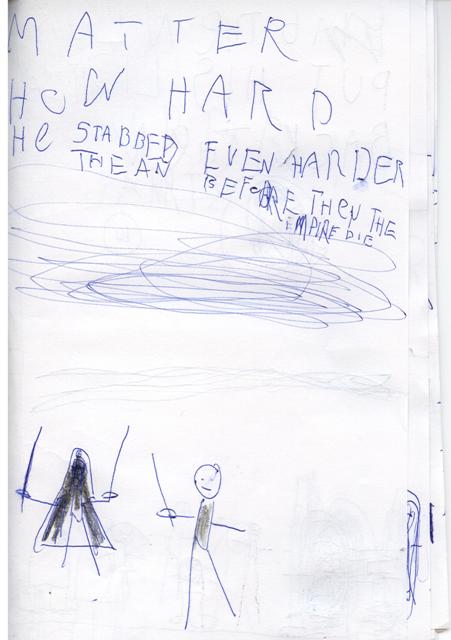 MATTER
HOW HARD
He STABBED EVEN HARDER
THEAN BEFORE THEN THE
iMPIRE DIE